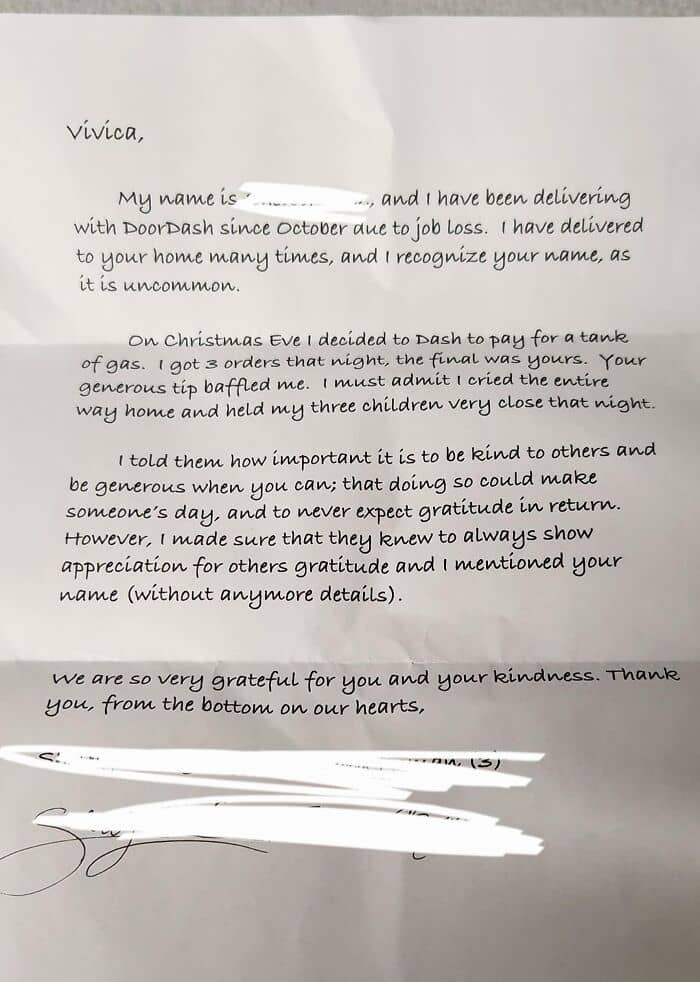 Vivica,
My name is , and I have been delivering
with DoorDash since October due to job loss. I have delivered
to your home many times, and I recognize your name, as
it is uncommon.
On Christmas Eve I decided to Dash to pay for a tank
of gas. I got 3 orders that night, the final was yours. Your
generous tip baffled me. I must admit I cried the entire
way home and held my three children very close that night.
I told them how important it is to be kind to others and
be generous when you can; that doing so could make
someone's day, and to never expect gratitude in return.
However, I made sure that they knew to always show
appreciation for others gratitude and I mentioned your
name (without anymore details).
We are so very grateful for you and your kindness. Thank
you, from the bottom on our hearts,
(3)